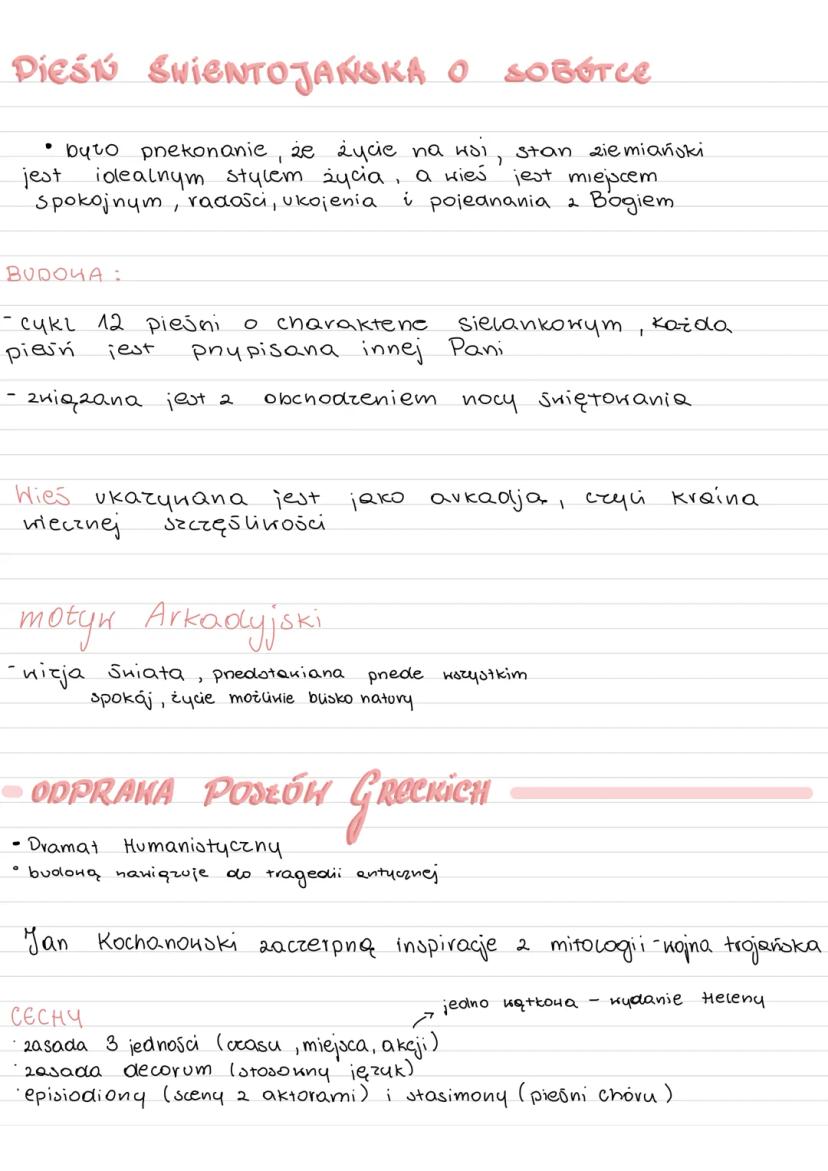 PIEŚŃ ŚWIENTOJAŃSKA O SOBÓTCE
• było przekonanie, że życie na wsi, stan ziemiański
jest idealnym stylem życia, a wieś jest miejscem
spokojnym, radości, ukojenia i pojednania z Bogiem
BUDOWA:
- cykl 12 pieśni o charakterze sielankowym, każda
pieśń jest przypisana innej Pani
- związana jest z obchodzeniem nocy świętowania
Wieś ukazywana jest jako arkadja, czyli kraina
wiecznej szczęśliwości
motyw Arkadyjski
- wizja świata, przedstawiana przede wszystkim
spokój, życie możliwie blisko natury
ODPRAWA POSŁÓW GRECKICH
• Dramat Humanistyczny
• budową nawiązuje do tragedii antycznej
Jan Kochanowski zaczerpną inspiracje z mitologii - wojna trojańska
→ jedno wątkowa - wydanie Heleny
CECHY
· zasada 3 jedności (czasu, miejsca, akcji)
· zasada decorum (stosowny język)
· episiodiony (sceny z aktorami) i stasimony (pieśni chóru)